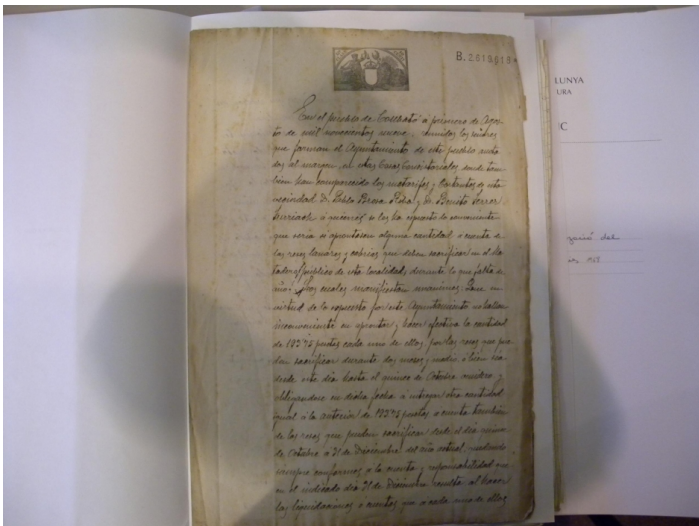 B.2618619
LUNYA
URA
C
En el pueblo de a primero de Agos-
to de mil novecientos nueve, reunidos los señores
que forman el Ayuntamiento de este pueblo anota-
dos al margen, en estas Casas Consistoriales donde tam-
bien han comparecido los y de esta
vecindad D. Pablo Roda y D. Benito Ferrer
á quienes se les ha espuesto lo conveniente
que seria si aprontasen alguna cantidad á cuenta de
las reses lanares y cabrias que deban sacrificar en el Ma-
tadero público de esta localidad durante lo que falta de
año: los cuales manifiestan unanimes: Que en
virtud de lo espuesto por este Ayuntamiento no hallan
inconveniente en aprontar y hacer efectiva la cantidad
de 193'75 pesetas cada uno de ellos, por las reses que pue-
dan sacrificar durante dos meses y medio ó bien sea
desde este dia hasta el quince de Octubre
obligandose en dicha fecha á entregar otra cantidad
igual á la anterior de 193'75 pesetas á cuenta tambien
de las reses que puedan sacrificar desde el dia quince
de Octubre á 31 de Diciembre del año actual, quedando
siempre conformes á la cuenta y responsabilidad que
en el indicado dia 31 de Diciembre resulte al hacer
las liquidaciones ó cuentas que á cada uno de ellos